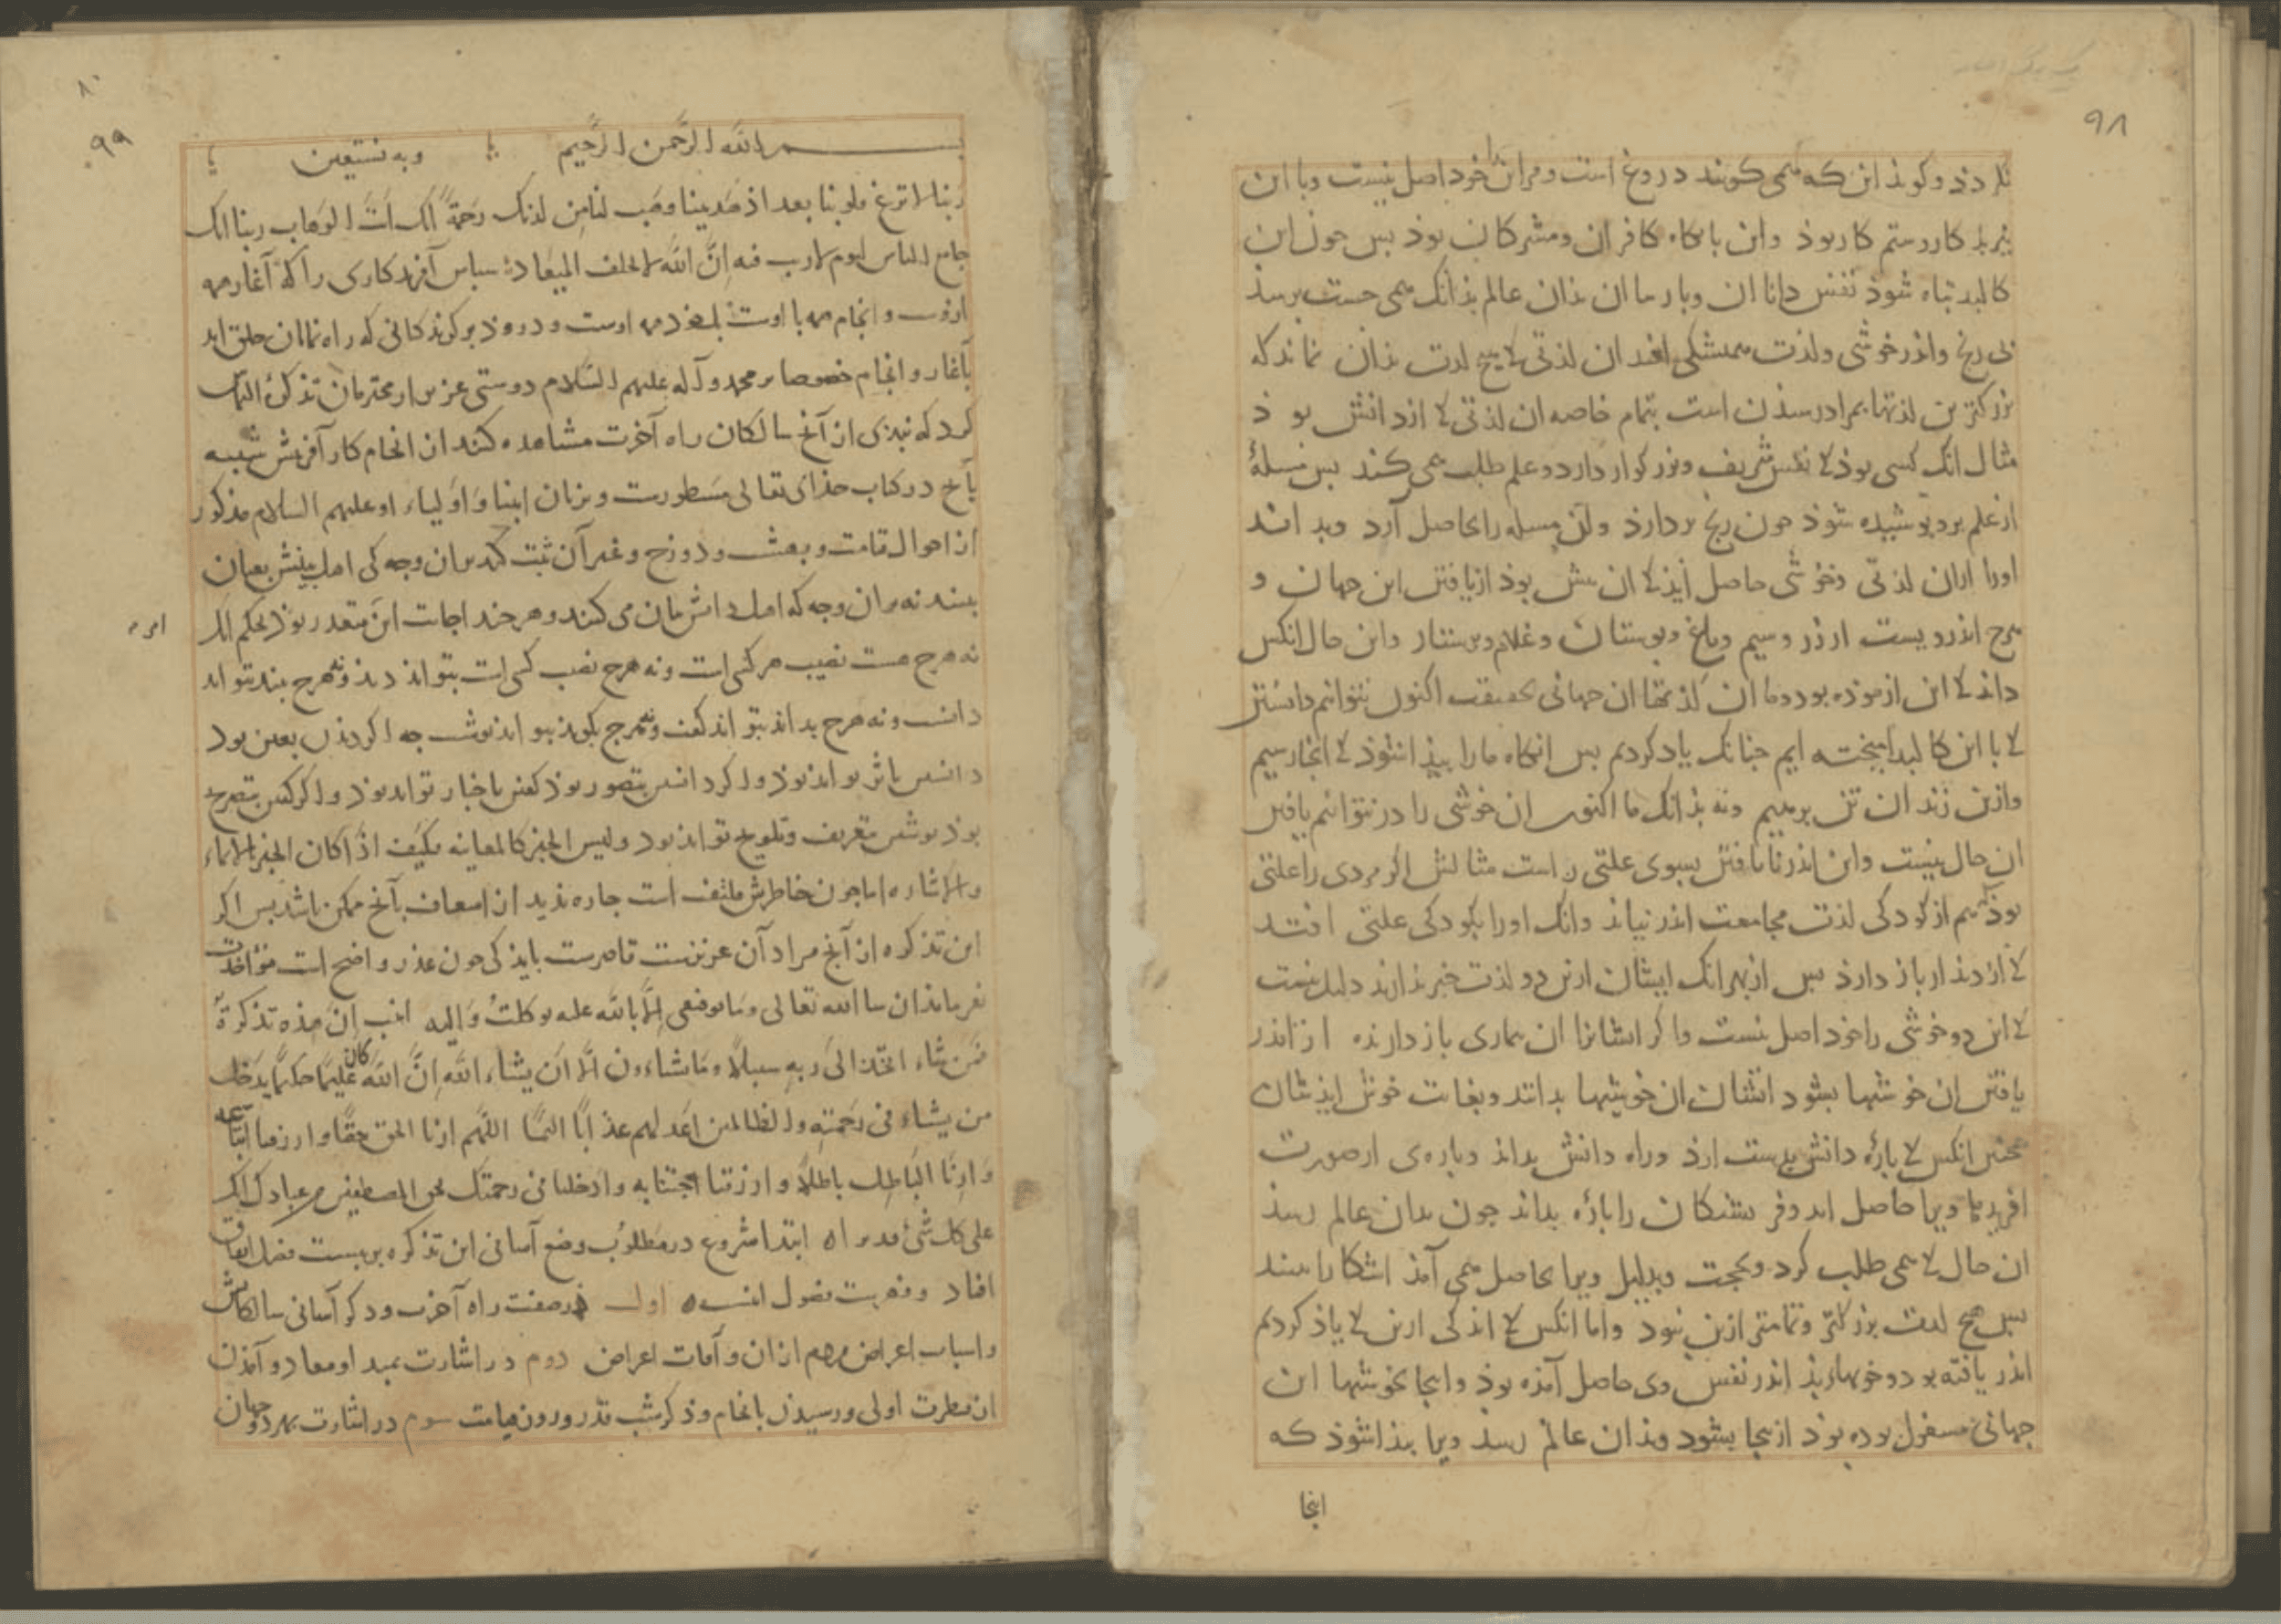 ۹۸
نکردذ وکوند این که همی کویند دروغ است ومر این را خود اصل نیست وبا این
نیز بذ کار وستم کار بوذ واین بایکاه کافران ومشرکان بوذ بس جون این
کالبد تباه شوذ نفس دانا ان وبارسا ان بذان عالم بذانک همی جست برسذ
بی رنج واندر خوشی ولذت همیشکی افتد ان لذتی که هیچ لذت بذان نماند که
بزرکترین لذتها بمراد رسیذن است بتمام خاصه ان لذتی که از دانش بوذ
مثال انک کسی بوذ که نفس شریف وبزرکوار دارد وعلم طلب همی کند بس مسلهٔ
از علم برو بوشیده شوذ جون رنج بردارذ وان مسله را بحاصل آرد وبداند
اورا ازان لذتی وخوشی حاصل آیذ که ان بیش بوذ از یافتن این جهان و
هرج اندرویست از زر وسیم وباغ وبوستان وغلام وبرستار واین حال انکس
داند که این ازموذه بود وما ان لذتهاء ان جهانی بحقیقت اکنون نتوانیم دانستن
که با این کالبد امیخته ایم جنانک یاد کردیم بس انکاه مارا بیذا شوذ که انجا رسیم
وازین زندان تن برهیم ونه بذانک ما اکنون ان خوشی را در نتوانیم یافتن
ان حال نیست واین اندر نایافتن بسوی علتی راست مثالش اکر مردی را علتی
بوذ هم از کودکی لذت مجامعت اندر نیابد وانک اورا بکودکی علتی افتد
که از دیذار باز دارذ بس از بهر انک ایشان ازین دو لذت خبر ندارند دلیل نیست
که این دو خوشی را خود اصل نیست واکر ایشانرا ان بیماری باز دارنده از اندر
یافتن ان خوشیها بشود ایشان ان خوشیها بدانند وبغایت خوش ایذشان
همجنین انکس که بارهٔ دانش بدست ارذ وراه دانش بداند وباره‌ی از صورت
افریذها ویرا حاصل اید وفریشتکان را بارهٔ بداند جون بدان عالم رسذ
ان حال که همی طلب کرد وبحجت وبدلیل ویرا بحاصل همی آمذ اشکارا بیند
بس هیچ لذت بزرکتر وتمامتر ازین نبود واما انکس که اندکی ازین که یاذ کردیم
اندر یافته بود وخوبهاء بذ اندر نفس وی حاصل آمذه بوذ واینجا بخوشیها این
جهانی مشغول بوده بوذ ازینجا بشود وبذان عالم رسذ ویرا بیذا شوذ که
اینجا
۸۰
۹۹
بسم الله الرحمن الرحیم وبه نستعین
ربنا لا تزغ قلوبنا بعد اذ هدیتنا وهب لنا من لدنک رحمةً انک انت الوهاب ربنا انک
جامع الناس لیوم لا ریب فیه ان الله لا یخلف المیعاد سباس آفریدکاری را که آغاز همه
ازوست وانجام همه با اوست بلک خود همه اوست ودروذ بر کویندکانی که راه نمایان خلق اند
بآغاز وانجام خصوصا بر محمد وآله علیهم السّلام دوستی عزیز از محترمان تذکرهٔ التماس
کرد که نبذی از آنج سالکان راه آخرت مشاهده کنند از انجام کار آفرینش شبیه
بآنج در کتاب خذای تعالی مسطورست وبزبان انبیا واولیاء او علیهم السلام مذکور
از احوال قیامت وبعث ودوزخ وغیر آن ثبت کند بران وجه کی اهل بینش بعیان
بینند نه بران وجه که اهل دانش بیان می کنند وهرجند اجابت این متعذر بوذ بحکم الک
نه هرج هست نصیب هر کسی است ونه هرج نصیب کسی است بتواند دید ونه هرج بیند بتواند
دانست ونه هرج بداند بتواند کفت ونه هرج بکویذ بتواند نوشت جه اکر دیذن بعین بود
دانستن باثر تواند بوذ واکر دانستن بتصور بوذ کفتن باخبار تواند بوذ واکر کفتن بتصریح
بوذ نوشتن بتعریض وتلویح تواند بود ولیس الخبر کالمعاینه فکیف اذا کان الخبر بالایماء
والاشاره اما جون خاطرش ملتفت است جاره ندید از اسعاف بآنج ممکن باشد بس اکر
این تذکره از آنج مراد آن عزیزست قاصرست باید کی جون عذر واضح است مؤاخذت
نفرماید ان شا الله تعالی وما توفیقی الا بالله علیه توکلتُ والیه انیب ان هذه تذکرةٌ
فمن شاء اتخذ الی ربه سبیلاً وما تشاءون الا ان یشاء الله ان الله کان علیمًا حکیمًا یدخل
من یشاء فی رحمته والظالمین اعد لهم عذابًا الیمًا اللهم ارنا الحق حقًا وارزقنا اتباعه
وارنا الباطل باطلاً وارزقنا اجتنابه وادخلنا فی رحمتک بحق المصطفین من عبادک انک
علی کل شیء قدیر ابتدا مشروع در مطلوب وضع آسانی این تذکره بر بیست فصل اتفاق
افتاد وفهرست فصول اینست اول در صفت راه آخرت وذکر آسانی سالکانش
واسباب اعراض مردم از ان وآفات اعراض دوم در اشارت بمبدا ومعاد وآمذن
از فطرت اولی ورسیذن بانجام وذکر شب قدر وروز قیامت سوم در اشارت بهر دو جهان